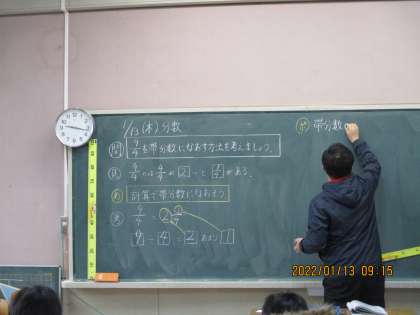 1/13(木)分数
問 9/4を帯分数になおす方法を考えましょう。
9/4には4/4が2こと1/4がある。
め 計算で帯分数になおそう
9/4 = 2 1/4
9 ÷ 4 = 2 あまり 1
ポ 帯分数の
2022/01/13 09:15